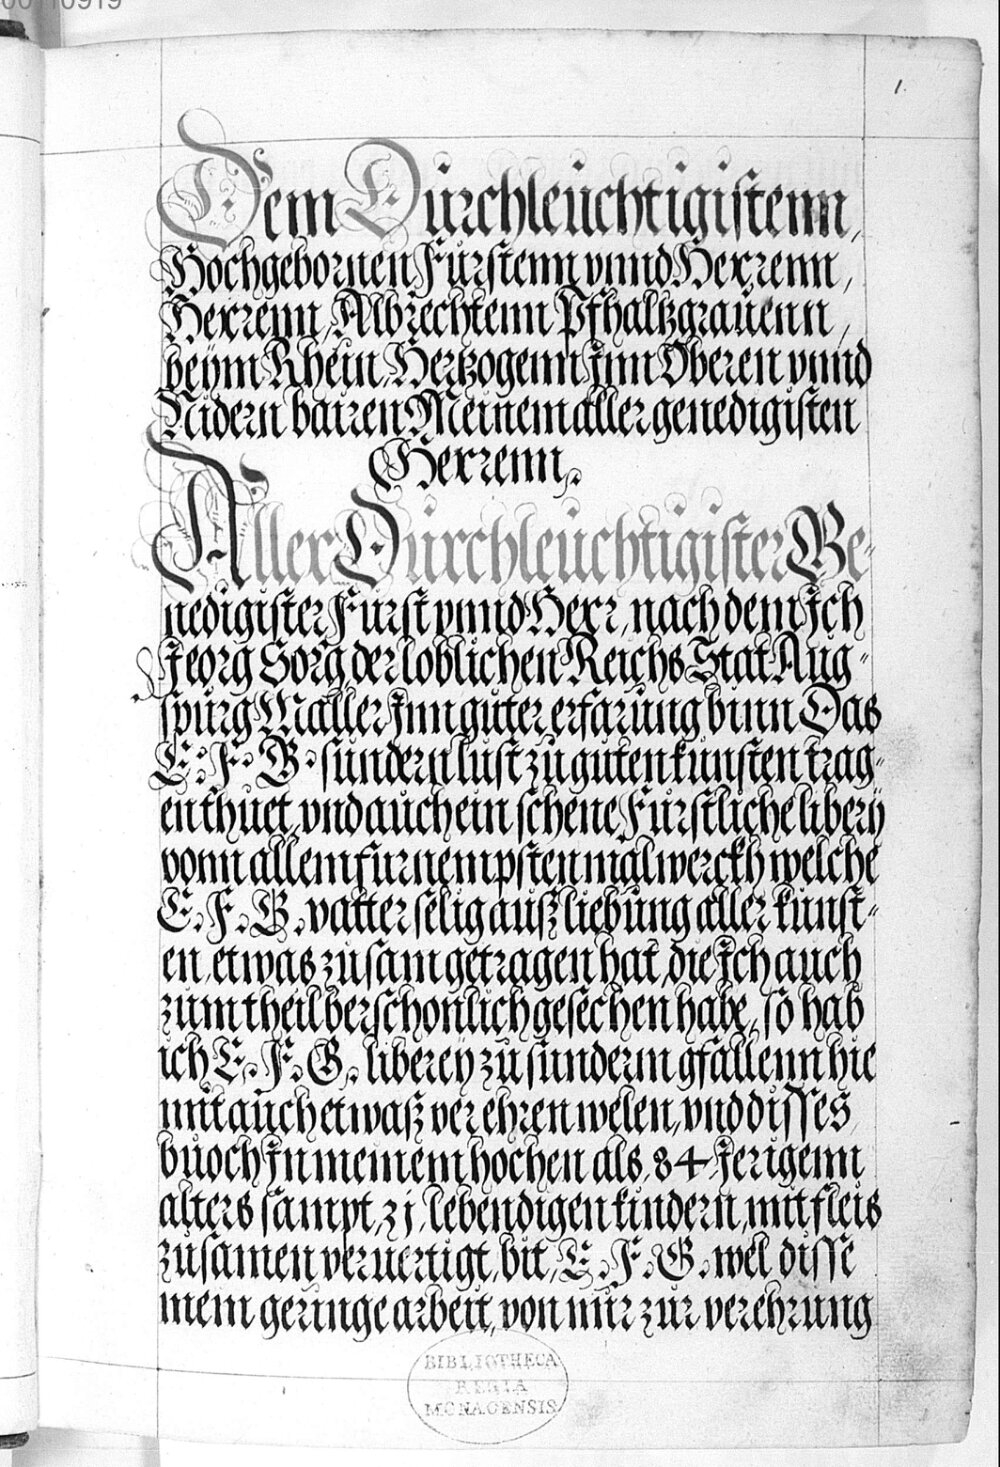 00110919
1.
Dem Durchleuchtigistenn,
Hochgebornen Fürstenn vnnd Herrenn,
Herrenn, Albrechtenn Pfhaltzgrauenn,
beym Rhein, Hertzogenn Inn Oberen vnnd
Nidern bairen Meinem aller genedigisten
Herrenn,
Aller Durchleuchtigister Ge-
nedigister Fürst vnnd Herr, nach dem Ich
Jeorg Sorg der loblichen Reichs Stat Aug-
spurg Maller Inn guter erfarung binn Das
E. F. G. sundern lust zu guten kunsten trag-
en thuet, vnd auch ein schene Fürstliche libery
vonn allem furnempsten malwerckh welche
E. F. G. vatter selig auß liebung aller kunst-
en, etwas zusam getragen hat, die Ich auch
zum theil berschonlich gesechen habe, so hab
ich E. F. G. liberey zu sunderm gfallenn hie
mit auch etwaß ver ehren welen, vnd disses
buoch In meinem hochen als 84 Jerigenn
alters sampt, 21, lebendigen kindern, mit fleis
zusamen veruertigt, bit, E. F. G. wel disse
mein geringe arbeit, von mir zur verehrung
BIBLIOTHECA
REGIA
MONACENSIS